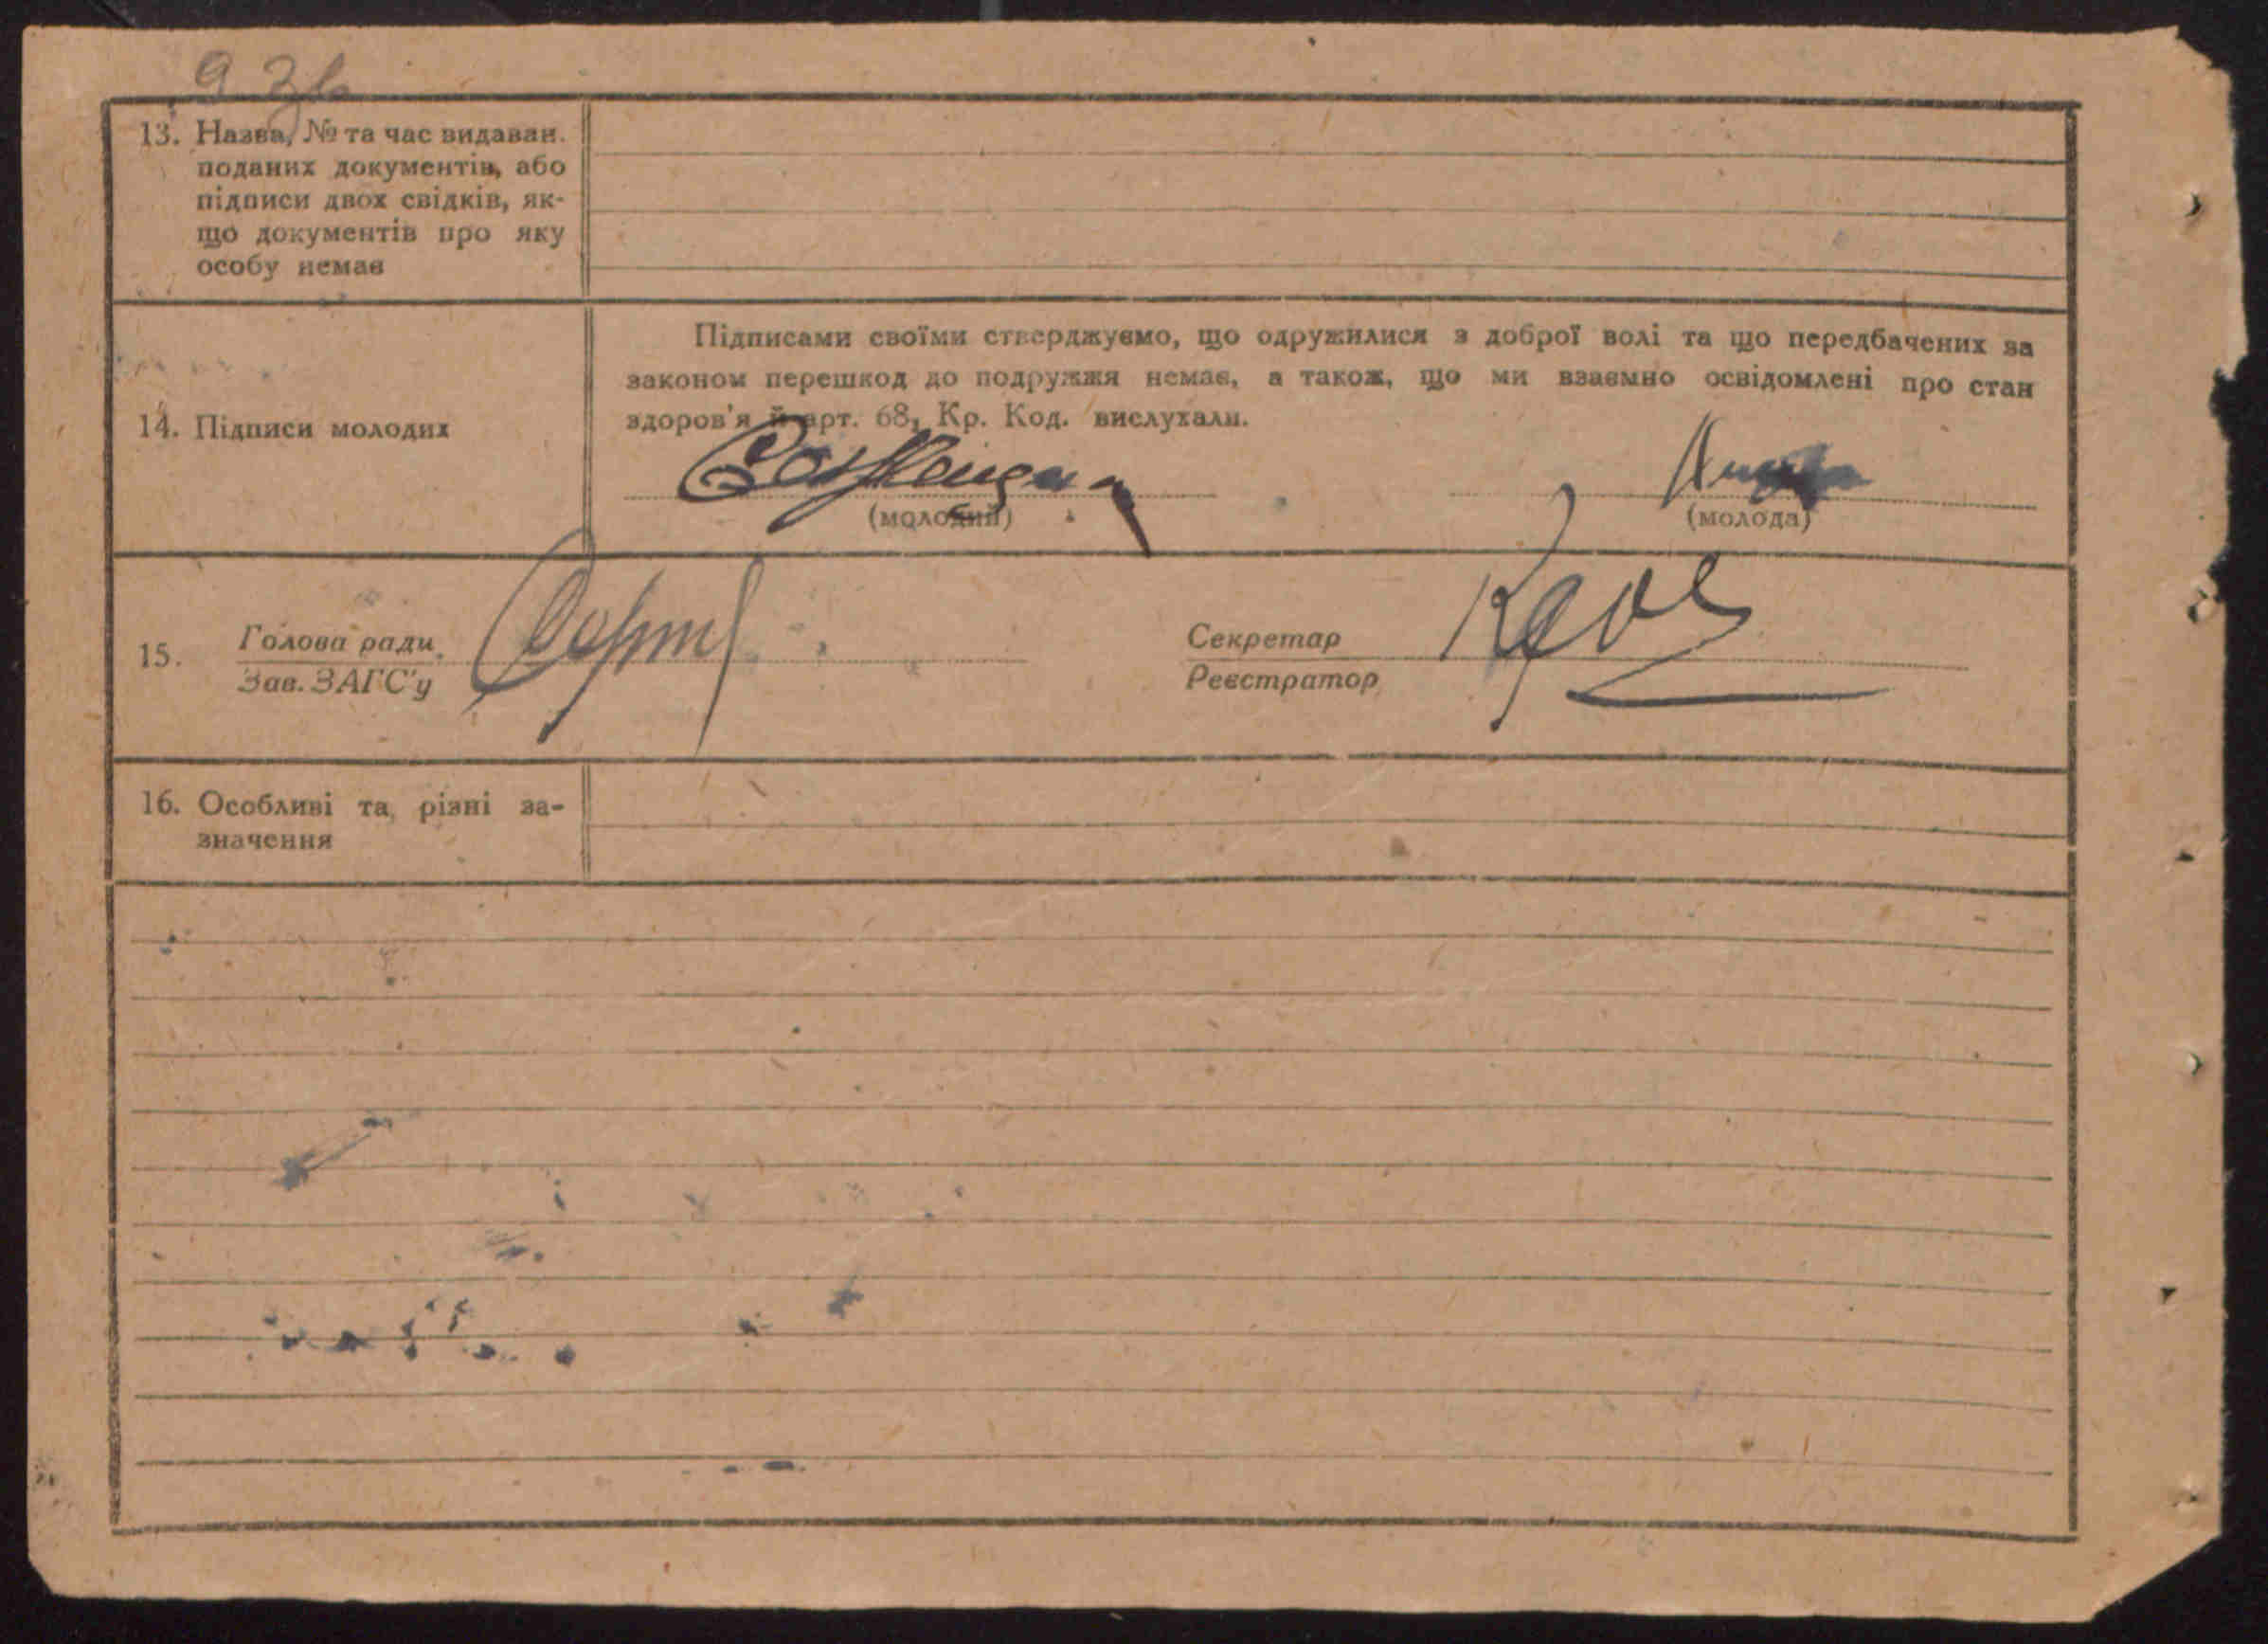 9 зв
13. Назва, № та час видаван.
поданих документів, або
підписи двох свідків, як-
що документів про яку
особу немає
Підписами своїми стверджуємо, що одружилися з доброї волі та що передбачених за
законом перешкод до подружжя немає, а також, що ми взаємно освідомлені про стан
здоров'я й арт. 68, Кр. Код. вислухали.
14. Підписи молодих
(молодий)
(молода)
15. Голова ради
Зав. ЗАГС'у
Секретар
Реєстратор
16. Особливі та різні за-
значення